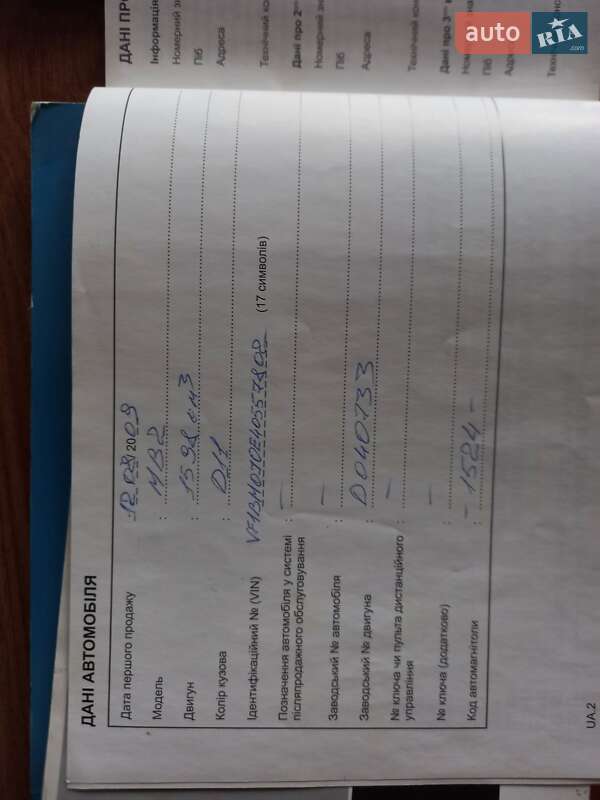 auto RIA .com
ДАНІ ПРО
Інформація
Номерний
ПІБ
Адреса
Дані про 2
Номерний
ПІБ
Адреса
Дані про 3
ПІБ
ДАНІ АВТОМОБІЛЯ
Дата першого продажу : 12.08.2009
Модель : MB2
Двигун : 1598 см3
Колір кузова : D11
Ідентифікаційний № (VIN) (17 символів)
Позначення автомобіля у системі
післяпродажного обслуговування : —
Заводський № автомобіля : —
Заводський № двигуна : D040733
№ ключа чи пульта дистанційного
управління : —
№ ключа (додатково) : —
Код автомагнітоли : - 1524 -
UA.2